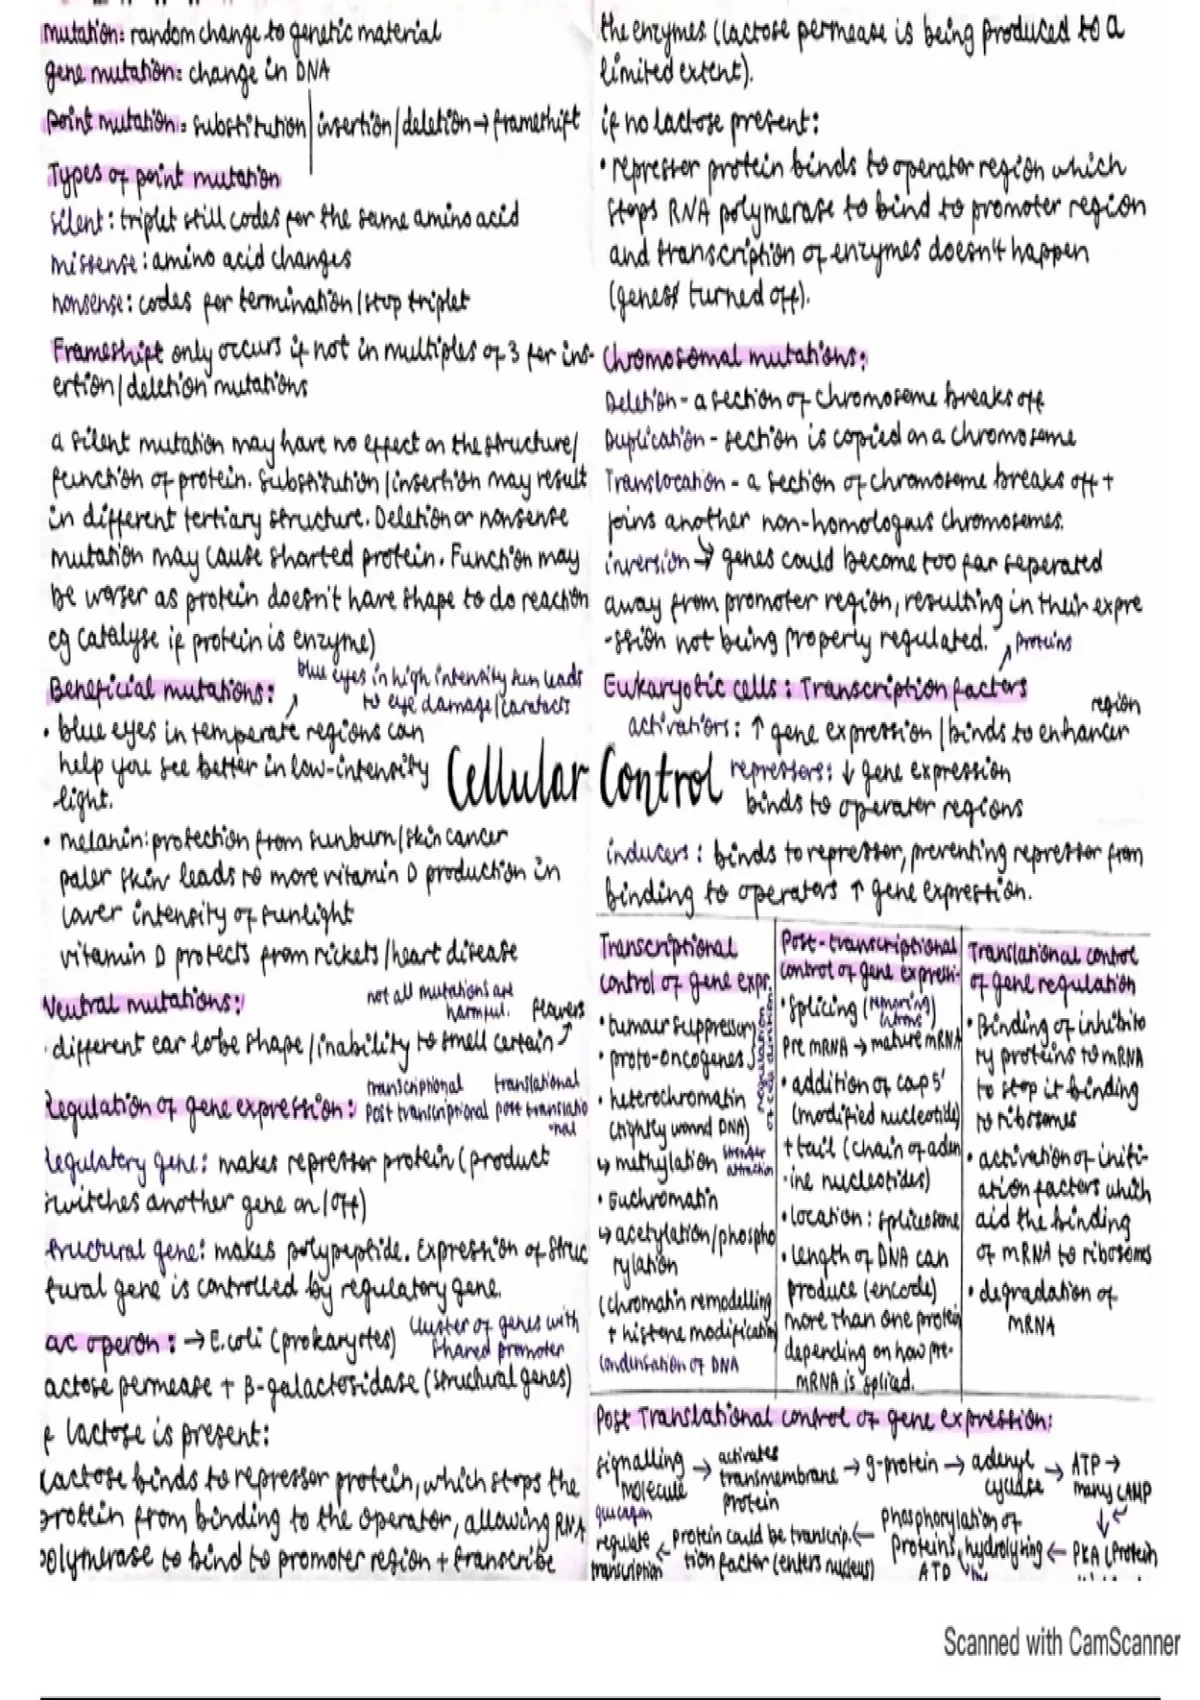 mutation: random change to genetic material
gene mutation: change in DNA
point mutation: substitution | insertion/deletion → frameshift
Types of point mutation
silent: triplet still codes for the same amino acid
missense: amino acid changes
nonsense: codes for termination/stop triplet
Frameshift only occurs if not in multiples of 3 for ins-
ertion/deletion mutations
a silent mutation may have no effect on the structure/
function of protein. Substitution/insertion may result
in different tertiary structure. Deletion or nonsense
mutation may cause shorted protein. Function may
be worser as protein doesn't have shape to do reaction
eg catalyse if protein is enzyme)
Beneficial mutations:
blue eyes in high intensity sun leads
to eye damage/
• blue eyes in temperate regions can
help you see better in low-intensity
light.
• melanin: protection from sunburn/skin cancer
paler skin leads to more vitamin D production in
lower intensity of sunlight
vitamin D protects from rickets/heart disease
Neutral mutations:
not all mutations are
harmful.
flowers
different ear lobe shape/inability to smell certain
Regulation of gene expression:
transcriptional translational
post transcriptional post translatio
-nal
Regulatory gene: makes repressor protein (product
switches another gene on/off)
structural gene: makes polypeptide. Expression of struc
tural gene is controlled by regulatory gene.
ac operon: → E.coli (prokaryotes)
cluster of genes with
shared promoter
actose permease + β-galactosidase (structural genes)
f lactose is present:
Lactose binds to repressor protein, which stops the
protein from binding to the operator, allowing RNA
polymerase to bind to promoter region + transcribe
Cellular Control
the enzymes (lactose permease is being produced to a
limited extent).
if no lactose present:
• repressor protein binds to operator region which
stops RNA polymerase to bind to promoter region
and transcription of enzymes doesn't happen
(genes turned off).
Chromosomal mutations:
Deletion - a section of chromosome breaks off
Duplication - section is copied on a chromosome
Translocation - a section of chromosome breaks off +
joins another non-homologous chromosomes.
inversion → genes could become too far seperated
away from promoter region, resulting in their expre
-ssion not being properly regulated.
proteins
Eukaryotic cells: Transcription factors
region
activators: ↑ gene expression/binds to enhancer
repressors: ↓ gene expression
binds to operator regions
inducers: binds to repressor, preventing repressor from
binding to operators ↑ gene expression.
Transcriptional
control of gene expr.
• tumour suppressor
• proto-oncogenes
regulation
of cell division
• heterochromatin
(tightly wound DNA)
↳ methylation
stronger
attraction
• euchromatin
↳ acetylation/phospho
rylation
(chromatin remodelling
+ histone modification
condensation of DNA
Post-transcriptional
control of gene expressi-
• splicing (removing introns)
pre mRNA → mature mRNA
• addition of cap 5'
(modified nucleotide)
+ tail (chain of aden
-ine nucleotides)
• location: spliceosome
• length of DNA can
produce (encode)
more than one protein
depending on how pre-
mRNA is spliced.
Translational control
of gene regulation
• Binding of inhibito
ry proteins to mRNA
to stop it binding
to ribosomes
• activation of initi-
ation factors which
aid the binding
of mRNA to ribosomes
• degradation of
mRNA
Post Translational control of gene expression:
signalling molecule → activates transmembrane protein → g-protein → adenyl cyclase → ATP → many cAMP
glucagon
PKA (Protein
Phosphorylation of
Proteins, hydrolysing ←
ATP
protein could be transcrip- ←
tion factor (enters nucleus)
regulate ←
transcription
Scanned with CamScanner